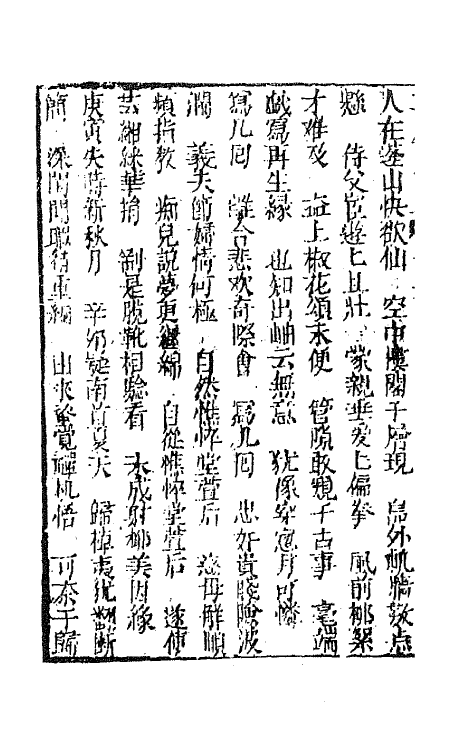 人在蓬山快欲仙　空中樓閣千層現　島外帆檣数点
懸　侍父宦遊〻且壯　蒙親垂爱〻偏拳　風前柳絮
才难及　盆上椒花頌未便　管隙敢窺千古事　毫端
戲寫再生緣　也知出岫云無意　犹像穿窓月可憐
寫几回　離合悲欢奇際會　寫几回　忠奸貴賤險波
瀾　義夫節婦情何極　自然憔悴堂萱后　慈母解頤
頻指教　痴兒説夢更纏綿　自從憔悴堂萱后　遂使
芸緗綵華捐　剛是脫靴相驗看　未成射柳美因緣
庚寅失恃新秋月　辛卯疑南首夏天　歸棹夷犹翻斷
簡　深閨閒暇待重編　由來早覺禪机悟　可奈于歸